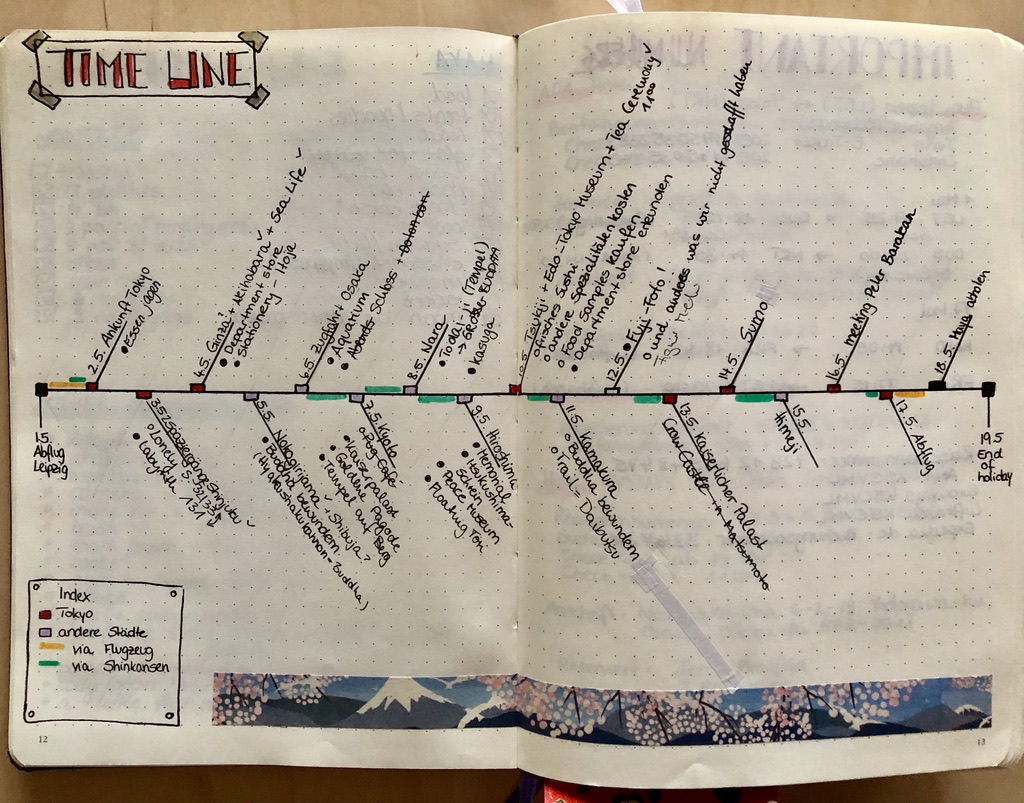 TIME LINE
1.5.
Abflug
Leipzig
2.5. Ankunft Tokyo
• Essen jagen
3.5.
Lonely
Labyrith 131
4.5. Ginza + Akihabara + Sea Life ✓
• Department store
• stationery - Itoja
5.5. Nokogirijama + Shibuja?
• Buddha bewundern
(Hyakushakukannon-Buddha)
6.5. Zugfahrt Osaka
• Aquarium
• Schloss + Dotonbori
7.5. Kyoto
Pug Cafe
• Kaiserpalast
• Goldene Pagode
• Tempel auf Berg
8.5. Nara
• Todai-ji (Tempel)
→ Großer BUDDHA
• Kasuga
9.5. Hiroshima
• Memorial
• Hokushima-
Schein
• Peace Museum
• Floating Tori
Tsukiji + Edo-Tokyo Museum + Tea Ceremony ✓
11:00
o frisches Sushi
o andere Spezialitäten kosten
• Food Samples kaufen
• Department store erkunden
11.5. Kamakura
o Buddha bewundern
o Trail = Daibutsu
12.5. • Fuji-Foto!
o und anderes was wir nicht geschafft haben
13.5. Kaiserlicher Palast
Crow Castle in Matsumoto
14.5. Sumo
15.5.
Himeji
16.5. meeting Peter Barakan
17.5. Abflug
18.5. abholen
19.5
End
of
holiday
Index.
Tokyo
andere Städte
via Flugzeug
via Shinkansen
12
13